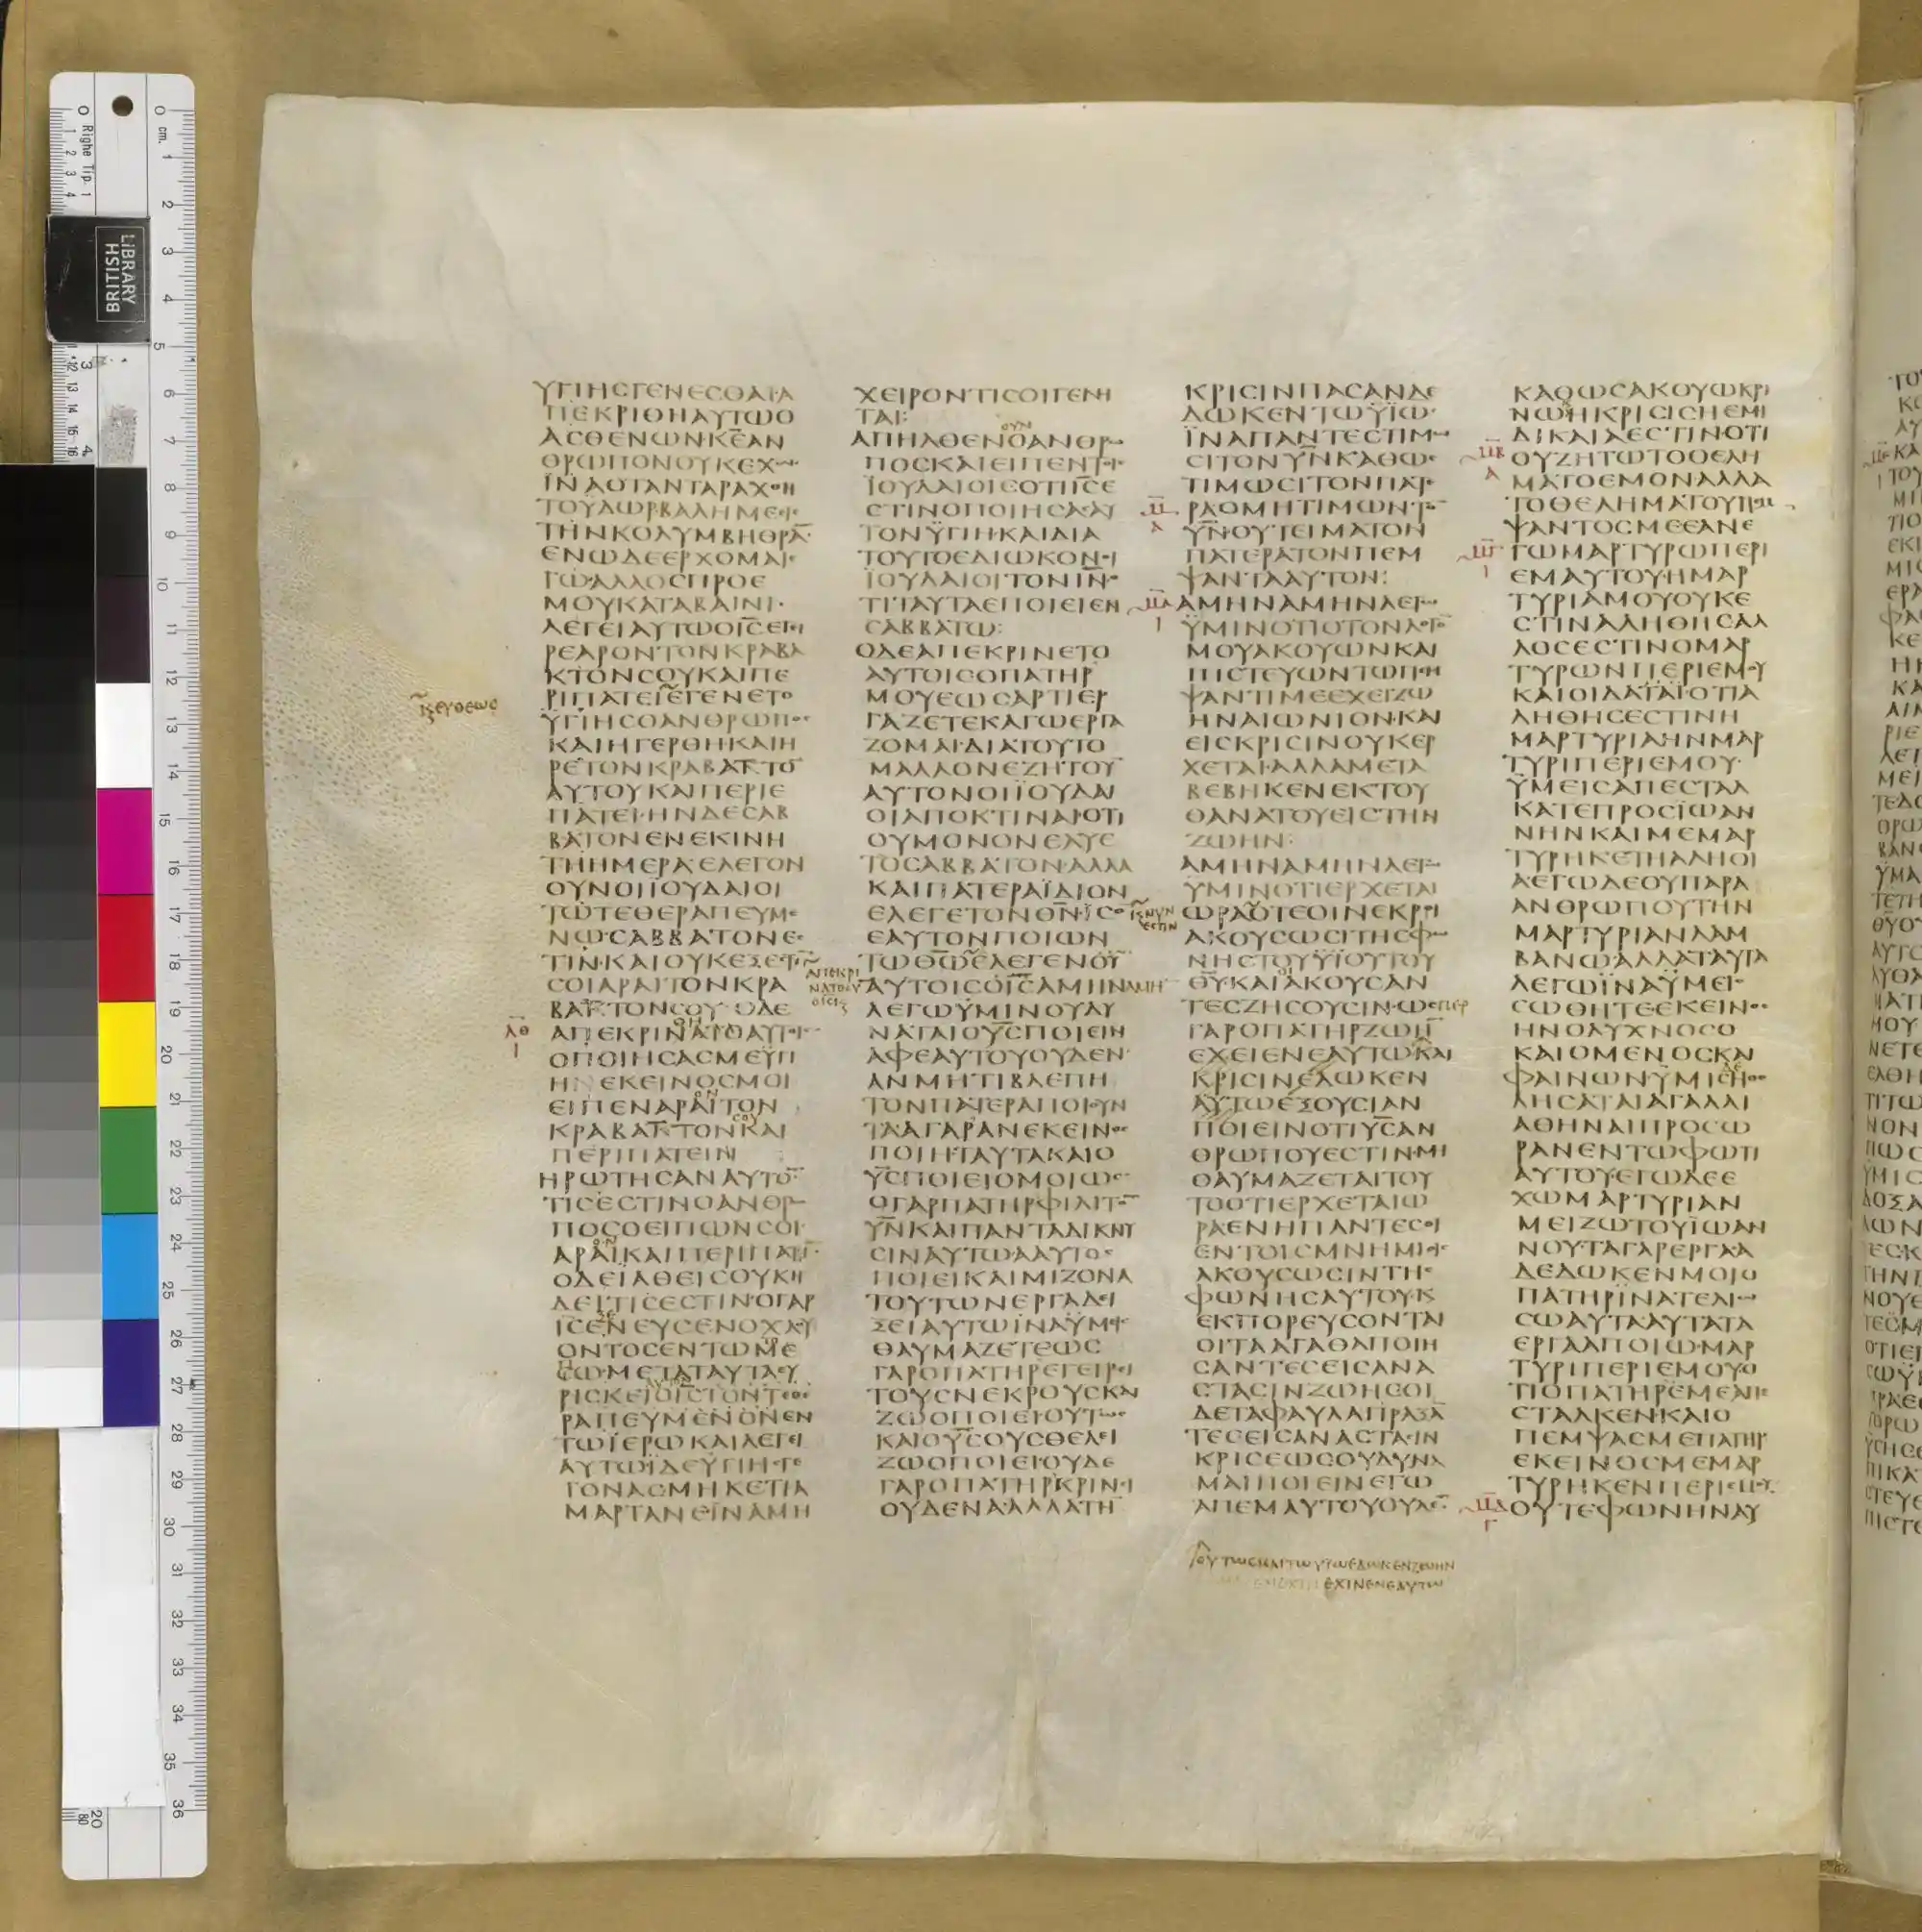 ΥΓΙΗCΓΕΝΕCΘΑΙ·Α
ΠΕΚΡΙΘΗΑΥΤΩΟ
ΑCΘΕΝΩΝ·Κ̅Ε̅ΑΝ
ΘΡΩΠΟΝΟΥΚΕΧΩ
ΙΝΑΟΤΑΝΤΑΡΑΧΘΗ
ΤΟΥΔΩΡΒΑΛΗΜΕΕΙC
ΤΗΝΚΟΛΥΜΒΗΘΡΑ̅
ΕΝΩΔΕΕΡΧΟΜΑΙΕ
ΓΩ·ΑΛΛΟCΠΡΟΕ
ΜΟΥΚΑΤΑΒΑΙΝΙ·
ΛΕΓΕΙΑΥΤΩΟΙ̅C̅ΕΓΕΙ
ΡΕΑΡΟΝΤΟΝΚΡΑΒΑ
ΚΤΟΝCΟΥΚΑΙΠΕ
ΡΙΠΑΤΕΙΕΓΕΝΕΤΟ
ΥΓΙΗCΟΑΝΘΡΩΠΟC
ΚΑΙΗΓΕΡΘΗΚΑΙΗ
ΡΕΤΟΝΚΡΑΒΑΚΤΟ̅
ΑΥΤΟΥΚΑΙΠΕΡΙΕ
ΠΑΤΕΙ·ΗΝΔΕCΑΒ
ΒΑΤΟΝΕΝΕΚΙΝΗ
ΤΗΗΜΕΡΑΕΛΕΓΟΝ
ΟΥΝΟΙΪΟΥΔΑΙΟΙ
ΤΩΤΕΘΕΡΑΠΕΥΜΕ
ΝΩ·CΑΒΒΑΤΟΝΕC
ΤΙΝ·ΚΑΙΟΥΚΕΞΕCΤΙ̅
CΟΙΑΡΑΙΤΟΝΚΡΑ
ΒΑΚΤΟΝCΟΥ·ΟΔΕ
ΑΠΕΚΡΙΝΑΤΟΑΥΤΟΙC
ΟΠΟΙΗCΑCΜΕΥΓΙ
ΗΝΕΚΕΙΝΟCΜΟΙ
ΕΙΠΕΝΑΡΑΙΤΟΝ
ΚΡΑΒΑΚΤΟΝΚΑΙ
ΠΕΡΙΠΑΤΕΙΝ
ΗΡΩΤΗCΑΝΑΥΤΟ̅·
ΤΙCΕCΤΙΝΟΑΝΘΡΩ
ΠΟCΟΕΙΠΩΝCΟΙ·
ΑΡΑΙΚΑΙΠΕΡΙΠΑΤΙ̅·
ΟΔΕΪΑΘΕΙCΟΥΚΗ
ΔΕΙΤΙCΕCΤΙΝ·ΟΓΑΡ
Ι̅C̅ΕΝΕΥCΕΝΟΧΛΟΥ
ΟΝΤΟCΕΝΤΩΜΕ
CΩ·ΜΕΤΑΤΑΥΤΑΕΥ
ΡΙCΚΕΙΟΙ̅C̅ΤΟΝΤΕΘΕ
ΡΑΠΕΥΜΕΝΟΝΕΝ
ΤΩΪΕΡΩΚΑΙΛΕΓΕΙ
ΑΥΤΩΪΔΕΥΓΙΗCΓΕ
ΓΟΝΑCΜΗΚΕΤΙΑ
ΜΑΡΤΑΝΕΙΝΑΜΗ
ΕΥΘΕΩC
ΑΠΕΚΡΙ
ΝΑΤΟΑΥ
ΤΟΙC
Λ̅Θ̅
Ι
ΧΕΙΡΟΝΤΙCΟΙΓΕΝΗ
ΤΑΙ:
ΟΥΝ
ΑΠΗΛΘΕΝΟΑΝΘΡΩ
ΠΟCΚΑΙΕΙΠΕΝΤΟΙC
ΪΟΥΔΑΙΟΙCΟΤΙΙ̅C̅Ε
CΤΙΝΟΠΟΙΗCΑCΑΥ
ΤΟΝΫΓΙΗΚΑΙΔΙΑ
ΤΟΥΤΟΕΔΙΩΚΟΝΟΙ
ΪΟΥΔΑΙΟΙΤΟΝΙ̅Ν̅·
ΤΙΤΑΥΤΑΕΠΟΙΕΙΕΝ
CΑΒΒΑΤΩ:
ΟΔΕΑΠΕΚΡΙΝΕΤΟ
ΑΥΤΟΙCΟΠΑΤΗΡ
ΜΟΥΕΩCΑΡΤΙΕΡ
ΓΑΖΕΤΕΚΑΓΩΕΡΓΑ
ΖΟΜΑΙ·ΔΙΑΤΟΥΤΟ
ΜΑΛΛΟΝΕΖΗΤΟΥ̅
ΑΥΤΟΝΟΙΪΟΥΔΑΙ
ΟΙΑΠΟΚΤΙΝΑΙ·ΟΤΙ
ΟΥΜΟΝΟΝΕΛΥΕ
ΤΟCΑΒΒΑΤΟΝ·ΑΛΛΑ
ΚΑΙΠΑΤΕΡΑΪΔΙΟΝ
ΕΛΕΓΕΤΟΝΘ̅Ν̅·ΪCΟΝ
ΕΑΥΤΟΝΠΟΙΩΝ
ΤΩΘ̅Ω̅ΕΛΕΓΕΝΟΥ̅
ΑΥΤΟΙCΟΙ̅C̅ΑΜΗΝΑΜΗ̅
ΛΕΓΩΫΜΙΝΟΥΔΥ
ΝΑΤΑΙΟΥ̅C̅ΠΟΙΕΙΝ
ΑΦΕΑΥΤΟΥΟΥΔΕΝ
ΑΝΜΗΤΙΒΛΕΠΗ
ΤΟΝΠΑΤΕΡΑΠΟΙΟΥΝ
ΤΑΑΓΑΡΑΝΕΚΕΙΝΟC
ΠΟΙΗΤΑΥΤΑΚΑΙΟ
Υ̅C̅ΠΟΙΕΙΟΜΟΙΩC
ΟΓΑΡΠΑΤΗΡΦΙΛΙΤΟ̅
Υ̅Ν̅ΚΑΙΠΑΝΤΑΔΙΚΝΥ
CΙΝΑΥΤΩΑΑΥΤΟC
ΠΟΙΕΙΚΑΙΜΙΖΟΝΑ
ΤΟΥΤΩΝΕΡΓΑΔΕΙ
ΞΕΙΑΥΤΩΪΝΑΫΜΕΙC
ΘΑΥΜΑΖΕΤΕΩC
ΓΑΡΟΠΑΤΗΡΕΓΕΙΡΕΙ
ΤΟΥCΝΕΚΡΟΥCΚΑΙ
ΖΩΟΠΟΙΕΙ·ΟΥΤΩC
ΚΑΙΟΥ̅C̅ΟΥCΘΕΛΕΙ
ΖΩΟΠΟΙΕΙ·ΟΥΔΕ
ΓΑΡΟΠΑΤΗΡΚΡΙΝΕΙ
ΟΥΔΕΝΑ·ΑΛΛΑΤΗ̅
ΚΡΙCΙΝΠΑCΑΝΔΕ
ΔΩΚΕΝΤΩΫΪΩ·
ΪΝΑΠΑΝΤΕCΤΙΜΩ
CΙΤΟΝΥ̅Ν̅ΚΑΘΩC
ΤΙΜΩCΙΤΟΝΠΑΤΕ
ΡΑΟΜΗΤΙΜΩΝΤΟ̅
Υ̅Ν̅·ΟΥΤΕΙΜΑΤΟΝ
ΠΑΤΕΡΑΤΟΝΠΕΜ
ΨΑΝΤΑΑΥΤΟΝ:
ΑΜΗΝΑΜΗΝΛΕΓΩ
ΫΜΙΝΟΤΙΟΤΟΝΛΟΓΟ̅
ΜΟΥΑΚΟΥΩΝΚΑΙ
ΠΙCΤΕΥΩΝΤΩΠΕΜ
ΨΑΝΤΙΜΕΕΧΕΙΖΩ
ΗΝΑΙΩΝΙΟΝ·ΚΑΙ
ΕΙCΚΡΙCΙΝΟΥΚΕΡ
ΧΕΤΑΙ·ΑΛΛΑΜΕΤΑ
ΒΕΒΗΚΕΝΕΚΤΟΥ
ΘΑΝΑΤΟΥΕΙCΤΗΝ
ΖΩΗΝ:
ΑΜΗΝΑΜΗΝΛΕΓΩ
ΥΜΙΝΟΤΙΕΡΧΕΤΑΙ
ΩΡΑΟΤΕΟΙΝΕΚΡΟΙ
ΑΚΟΥCΩCΙΤΗCΦΩ
ΝΗCΤΟΥΫΪΟΥΤΟΥ
Θ̅Υ̅·ΚΑΙΑΚΟΥCΑΝ
ΤΕCΖΗCΟΥCΙΝ·ΩCΠΕΡ
ΓΑΡΟΠΑΤΗΡΖΩΗ̅
ΕΧΕΙΕΝΕΑΥΤΩΚΑΙ
ΚΡΙCΙΝΕΔΩΚΕΝ
ΑΥΤΩΕΞΟΥCΙΑΝ
ΠΟΙΕΙΝΟΤΙΥ̅C̅ΑΝ
ΘΡΩΠΟΥΕCΤΙΝ·ΜΗ
ΘΑΥΜΑΖΕΤΑΙΤΟΥ
ΤΟΟΤΙΕΡΧΕΤΑΙΩ
ΡΑΕΝΗΠΑΝΤΕCΟΙ
ΕΝΤΟΙCΜΝΗΜΙΟΙC
ΑΚΟΥCΩCΙΝΤΗC
ΦΩΝΗCΑΥΤΟΥ·Κ
ΕΚΠΟΡΕΥCΟΝΤΑΙ
ΟΙΤΑΑΓΑΘΑΠΟΙΗ
CΑΝΤΕCΕΙCΑΝΑ
CΤΑCΙΝΖΩΗCΟΙ
ΔΕΤΑΦΑΥΛΑΠΡΑΞΑ̅
ΤΕCΕΙCΑΝΑCΤΑCΙΝ
ΚΡΙCΕΩCΟΥΔΥΝΑ
ΜΑΙΠΟΙΕΙΝΕΓΩ
ΑΠΕΜΑΥΤΟΥΟΥΔΕ̅
ΝΥΝ
ΕCΤΙΝ
ΟΥΤΩCΚΑΙΤΩΥΙΩΕΔΩΚΕΝΖΩΗΝ
ΕΧΙΝΕΝΕΑΥΤΩ
ΚΑΘΩCΑΚΟΥΩΚΡΙ
ΝΩΗΚΡΙCΙCΗΕΜΗ
ΔΙΚΑΙΑΕCΤΙΝΟΤΙ
ΟΥΖΗΤΩΤΟΘΕΛΗ
ΜΑΤΟΕΜΟΝΑΛΛΑ
ΤΟΘΕΛΗΜΑΤΟΥΠΕΜ
ΨΑΝΤΟCΜΕΕΑΝΕ
ΓΩΜΑΡΤΥΡΩΠΕΡΙ
ΕΜΑΥΤΟΥ·ΗΜΑΡ
ΤΥΡΙΑΜΟΥΟΥΚΕ
CΤΙΝΑΛΗΘΗCΑΛ
ΛΟCΕCΤΙΝΟΜΑΡ
ΤΥΡΩΝΠΕΡΙΕΜΟΥ
ΚΑΙΟΙΔΑΤΑΙΟΤΙΑ
ΛΗΘΗCΕCΤΙΝΗ
ΜΑΡΤΥΡΙΑΗΝΜΑΡ
ΤΥΡΙΠΕΡΙΕΜΟΥ·
ΫΜΕΙCΑΠΕCΤΑΛ
ΚΑΤΕΠΡΟCΪΩΑΝ
ΝΗΝΚΑΙΜΕΜΑΡ
ΤΥΡΗΚΕΤΗΑΛΗΘΙ
Α·ΕΓΩΔΕΟΥΠΑΡΑ
ΑΝΘΡΩΠΟΥΤΗΝ
ΜΑΡΤΥΡΙΑΝΛΑΜ
ΒΑΝΩΑΛΛΑΤΑΥΤΑ
ΛΕΓΩΪΝΑΫΜΕΙC
CΩΘΗΤΕ·ΕΚΕΙΝΟC
ΗΝΟΛΥΧΝΟCΟ
ΚΑΙΟΜΕΝΟCΚΑΙ
ΦΑΙΝΩΝ·ΫΜΙCΗΘΕ
ΛΗCΑΤΑΙΑΓΑΛΛΙ
ΑΘΗΝΑΙΠΡΟCΩ
ΡΑΝΕΝΤΩΦΩΤΙ
ΑΥΤΟΥ·ΕΓΩΔΕΕ
ΧΩΜΑΡΤΥΡΙΑΝ
ΜΕΙΖΩΤΟΥΪΩΑΝ
ΝΟΥ·ΤΑΓΑΡΕΡΓΑΑ
ΔΕΔΩΚΕΝΜΟΙΟ
ΠΑΤΗΡΪΝΑΤΕΛΙΩ
CΩΑΥΤΑΑΥΤΑΤΑ
ΕΡΓΑΑΠΟΙΩ·ΜΑΡ
ΤΥΡΙΠΕΡΙΕΜΟΥΟ
ΤΙΟΠΑΤΗΡΕΜΕΑΠΕ
CΤΑΛΚΕΝ·ΚΑΙΟ
ΠΕΜΨΑCΜΕΠΑΤΗΡ
ΕΚΕΙΝΟCΜΕΜΑΡ
ΤΥΡΗΚΕΝΠΕΡΙΕΜΟΥ
ΟΥΤΕΦΩΝΗΝΑΥ
BRITISH
LIBRARY